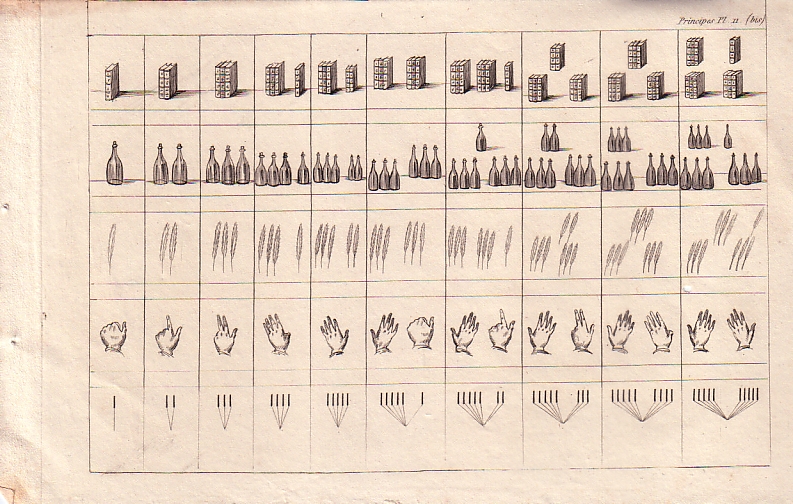 Principes Pl. 11. (bis)